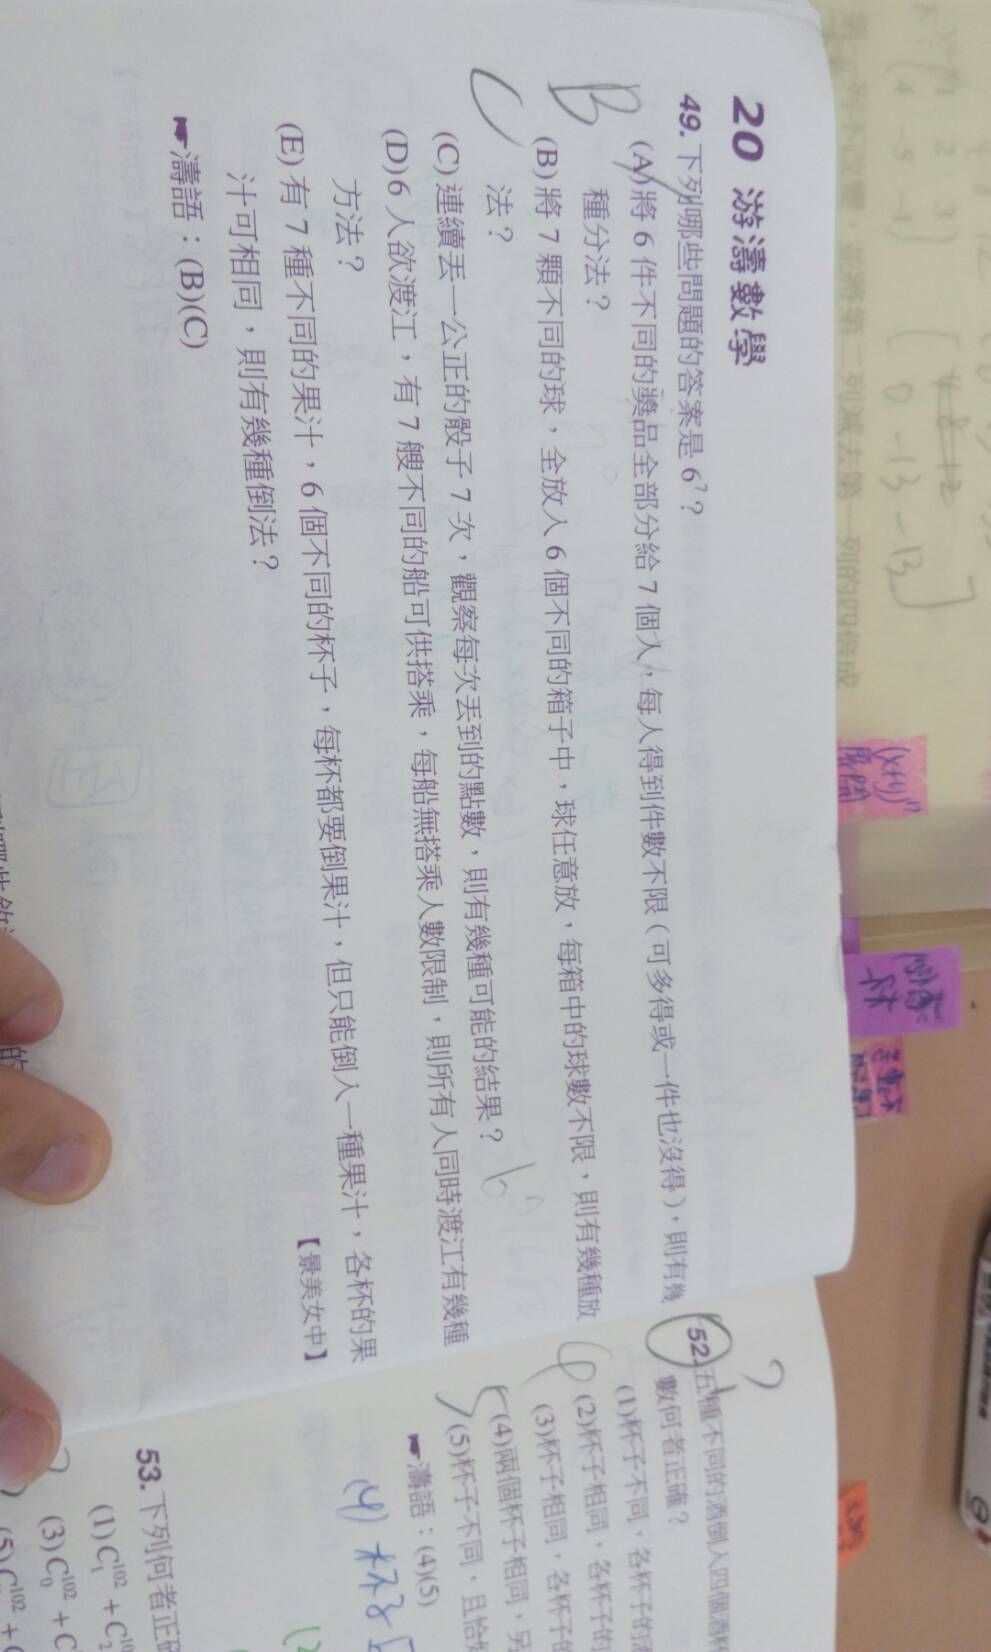 20 游濤數學
49. 下列哪些問題的答案是 6⁷？
(A)將 6 件不同的獎品全部分給 7 個人，每人得到件數不限（可多得或一件也沒得），則有幾
種分法？
(B)將 7 顆不同的球，全放入 6 個不同的箱子中，球任意放，每箱中的球數不限，則有幾種放
法？
(C)連續丟一公正的骰子 7 次，觀察每次丟到的點數，則有幾種可能的結果？
(D)6 人欲渡江，有 7 艘不同的船可供搭乘，每船無搭乘人數限制，則所有人同時渡江有幾種
方法？
(E)有 7 種不同的果汁，6 個不同的杯子，每杯都要倒果汁，但只能倒入一種果汁，各杯的果
汁可相同，則有幾種倒法？
【景美女中】
☛濤語：(B)(C)
B
C
52. 五種不同的酒倒入四個酒杯
數何者正確？
(1)杯子不同，各杯子的酒
(2)杯子相同，各杯子的
(3)杯子相同，各杯子的
(4)兩個杯子相同，另
(5)杯子不同，且恰好
☛濤語：(4)(5)
(4) 杯子
53. 下列何者正確
(1) C₁¹⁰² + C₂¹⁰
(3) C₀¹⁰² + C
(5) C¹⁰² +
列不改變，並將第二列減去第一列的四倍成
4 -5 -1
0 -13 -13
(x+y)ⁿ